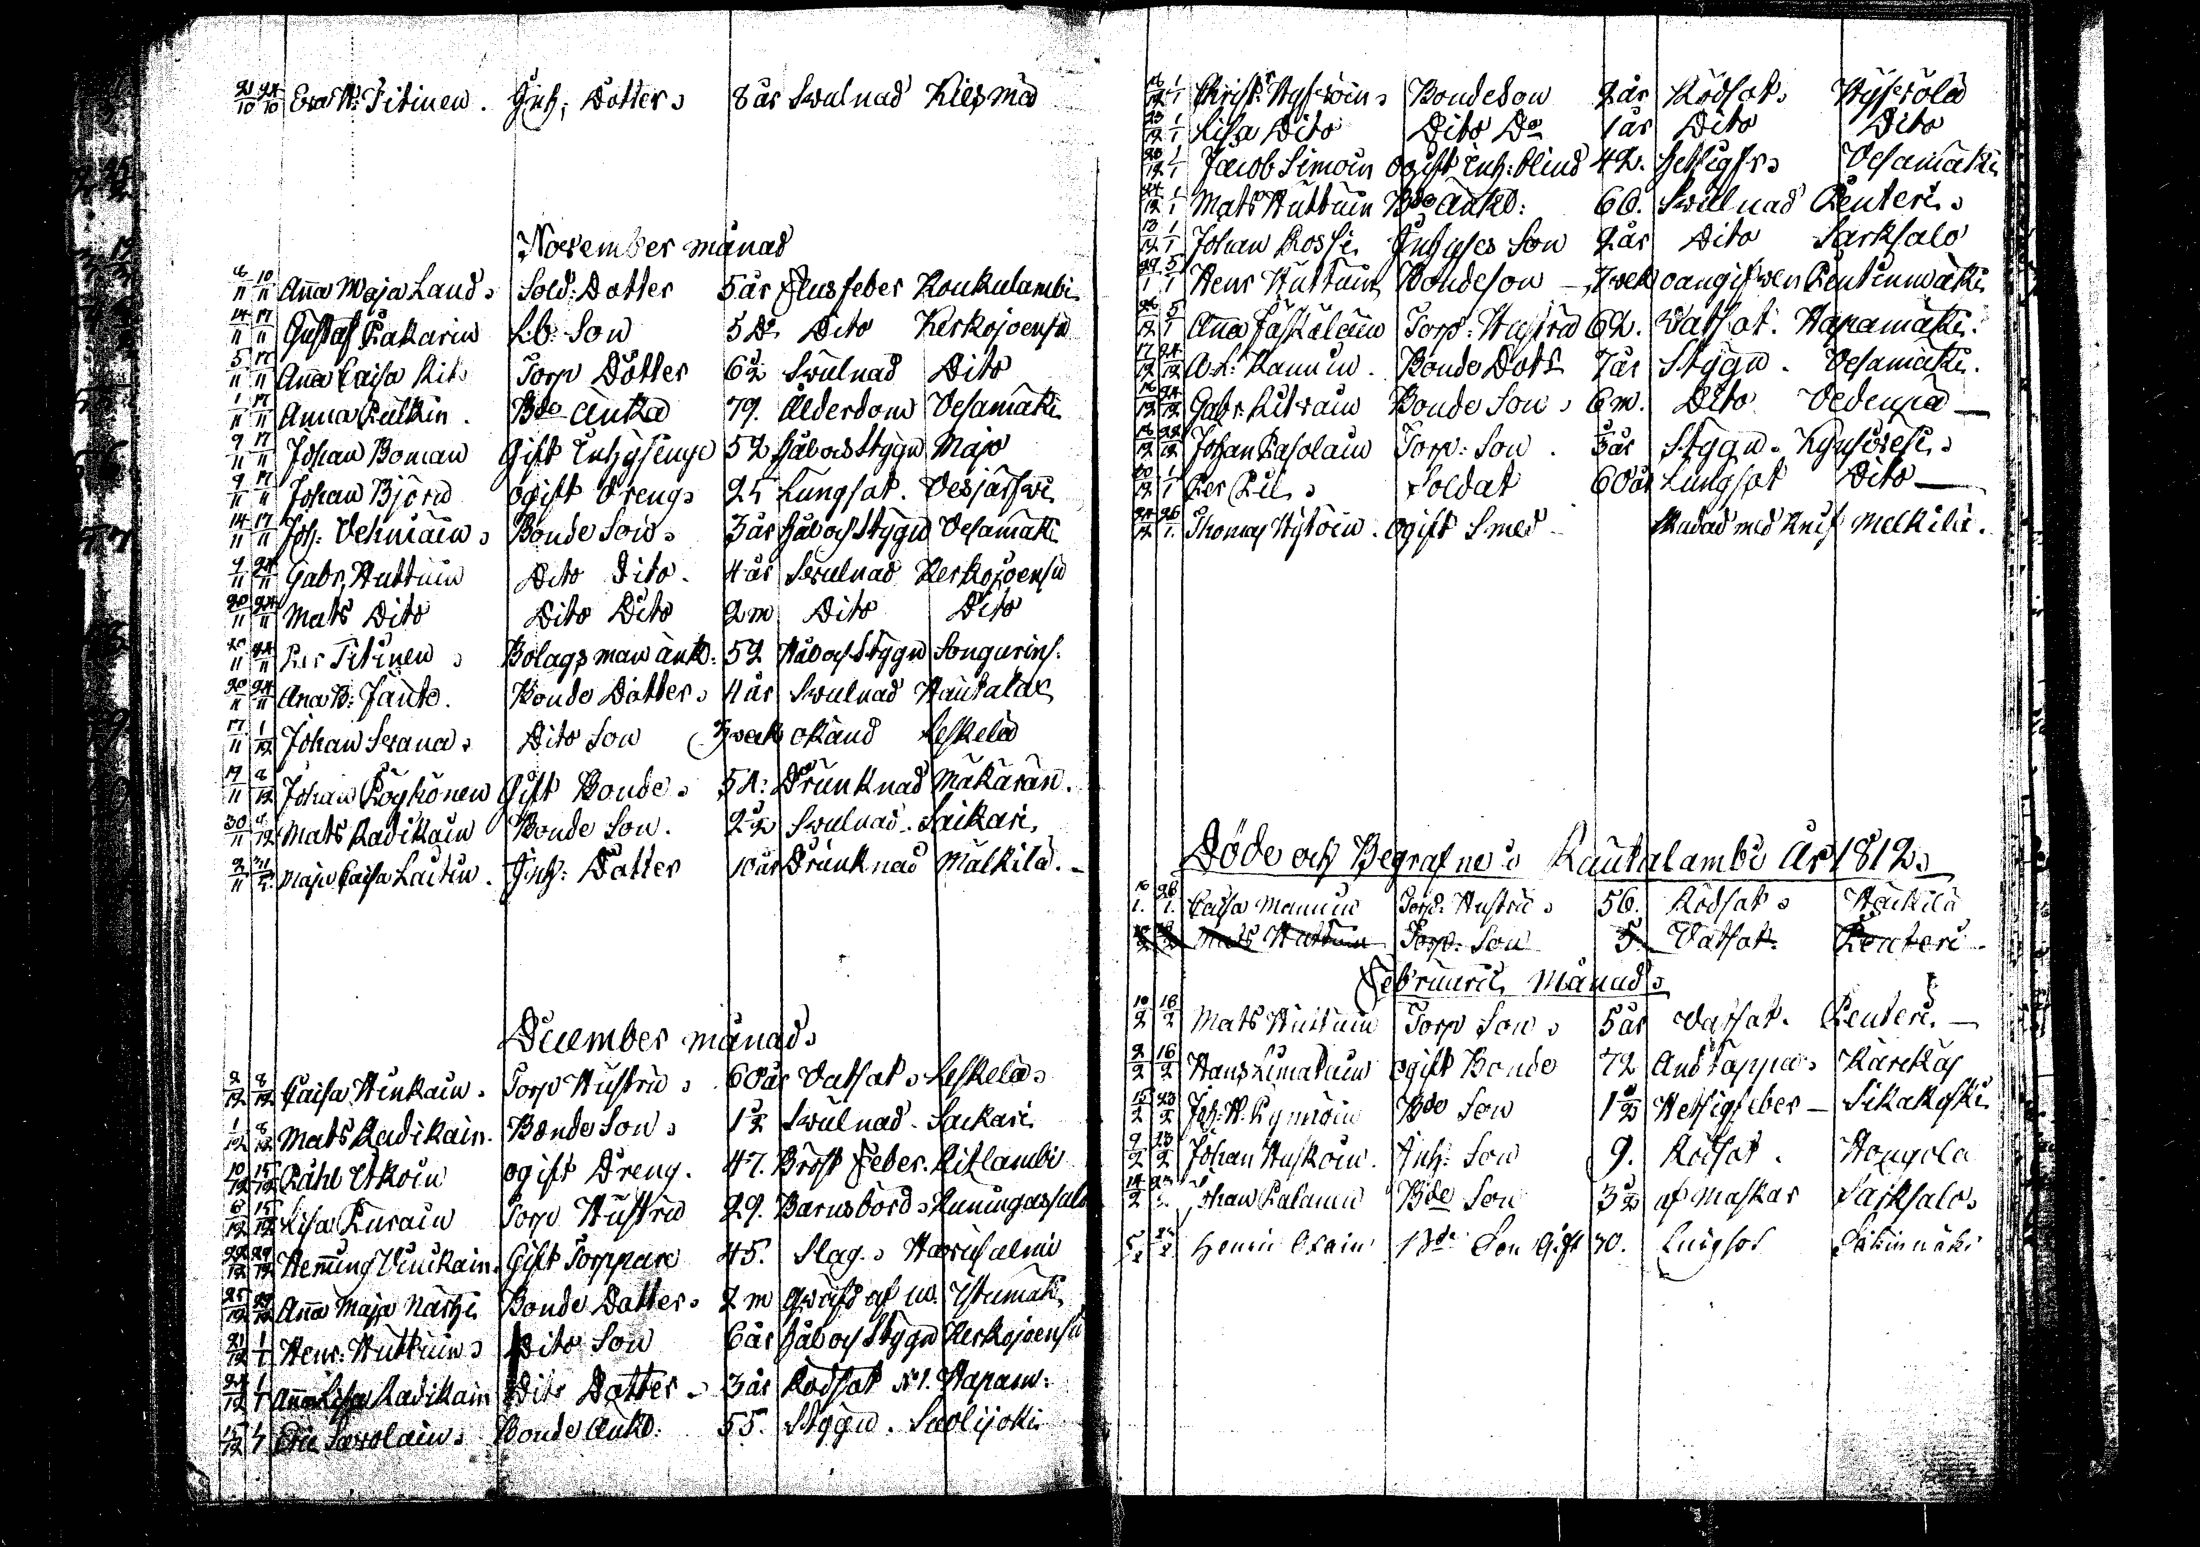 21/10 24/10 Eva St: Titinen. Inh: Dotter 8 år Swulnad Kiesimä
November månad
8/11 10/11 Aña Maja Land Sold: Dotter 5 år Flusfeber Konkulambi
14/11 17/11 Gustaf Pakarin Lb: Son 5 Do Dito Kerkojoensu
5/11 17/11 Aña Caisa Rit Torp Dotter 6 1/2 Swulnad Dito
1/11 17/11 Anna Pulkin. Bde Änka 79. Ålderdom Vesamäki
9/11 17/11 Johan Boman Gift Inhysinge 52 Håll och Stygn Majo
9/11 17/11 Johan Björn ogift Dreng 25 Lungsot. Vesjärfwi
14/11 17/11 Joh: Vehniäin Bonde Son 3 år Håll och Stygn Vesamäki
9/11 24/11 Gabr. Huttuin Dito Dito. 4 år Swulnad Kerkojoensu
20/11 24/11 Mats Dito Dito Dito 2 m Dito Dito
20/11 24/11 Per Titinen Bolagsman änk: 52 Håll och Stygn Songurins.
20/11 24/11 Ana B: Jänte. Bonde Dotter 4 år Swulnad Hautalax
17/11 1/12 Johan Swana Dito Son 3 wek okänd Leskelä
19/11 2/12 Johan Pöyhönen Gift Bonde 54: Drunknad Mäkärän.
30/11 2/12 Mats Radikain Bonde Son. 2 1/2 Swulnad. Saikari
2/11 Maja Caisa Laitin. Inh: Dotter 10 år Drunknad Mälkilä.
December månad
2/12 8/12 Caisa Hinkain. Torp Hustru 60 år Vatsot Leskelä
1/12 8/12 Mats Radikain. Bonde Son 1 1/2 Swulnad. Saikari
10/12 15/12 Påhl Utroin ogift Dreng. 47. Bröst Feber. Ritlambi
6/12 15/12 Lisa Kurain Torp Hustru 29. Barnsbörd Kuningassalo
22/12 29/12 Henning Vinikain. Gift Torppare 45. Slag. Hwrisalmi
25/12 29/12 Aña Maja Närhi Bonde Dotter 2 m qwäfd af Istumäki
21/12 1/1 Henr: Huttuin Dito Son 6 år Håll och Stygn Kerkojoensu
24/12 1/1 Aña Lisa Radikain Dito Dotter 3 år Rödsot No 1. Hapam:
15/12 1/1 Eric Sawolain Bonde Änkl: 55. Stygn. Sawlijoki
16/12 1/1 Christ: Hytwöin Bondeson 2 år Rödsot Hytwölä
23/12 1/1 Lisa Dito Dito Do 1 år Dito Dito
20/12 1/1 Jacob Simoin ogift Inh: blind 42. Hetsigfr Vesamäki
24/12 1/1 Mats Huttuin Bde änkl: 66. Swulnad Renteri
13/12 1/1 Johan Rossi Inhyses Son 2 år Dito Särksalo
29/1 5/1 Henr Huttuin Bondeson 7 wek oangifwen Pentinmäki
26/12 5/1 Aña Jäskeläin Torp: Hustru 62. Vatsot. Hapamäki.
17/12 24/12 A. L: Kanuin. Bonde Dotr 7 år Stygn. Vesamäki.
16/12 24/12 Gabr. Litwain Bonde Son 6 m. Dito Vedenpä
16/12 28/12 Johan Pasolain Torp: Son. 3 år Stygn. Kynsiwesi
20/12 1/1 Per Pil Soldat 60 år Lungsot Dito
24/12 26/1. Thomas Hytöin. ogift Smed. Skadad med Knif Melkilä.
Döde och Begrafne i Rautalambi År 1812
10/1. 26/1. Caisa Manuin Torp: Hustru 56. Rödsot Häikilä
Mats Huttuin Torp: Son 5. Vatsot. Renteri
Februarii Månad
10/2 16/2 Mats Huttuin Torp Son 5 år Vatsot. Renteri.
2/2 16/2 Hans Limatain ogift Bonde 72 Andtäppa Kärckäs
15/2 23/2 Joh: H. Kymöin Bde Son 1 1/2 Hetsigfeber Sikakoski
9/2 23/2 Johan Huskoin. Inh: Son 9. Rödsot. Hongola
14/2 23/2 Johan Kalanin Bde Son 3 1/2 af Maskar Särksalo
Henric Bde Son Gift 30. Lungsot